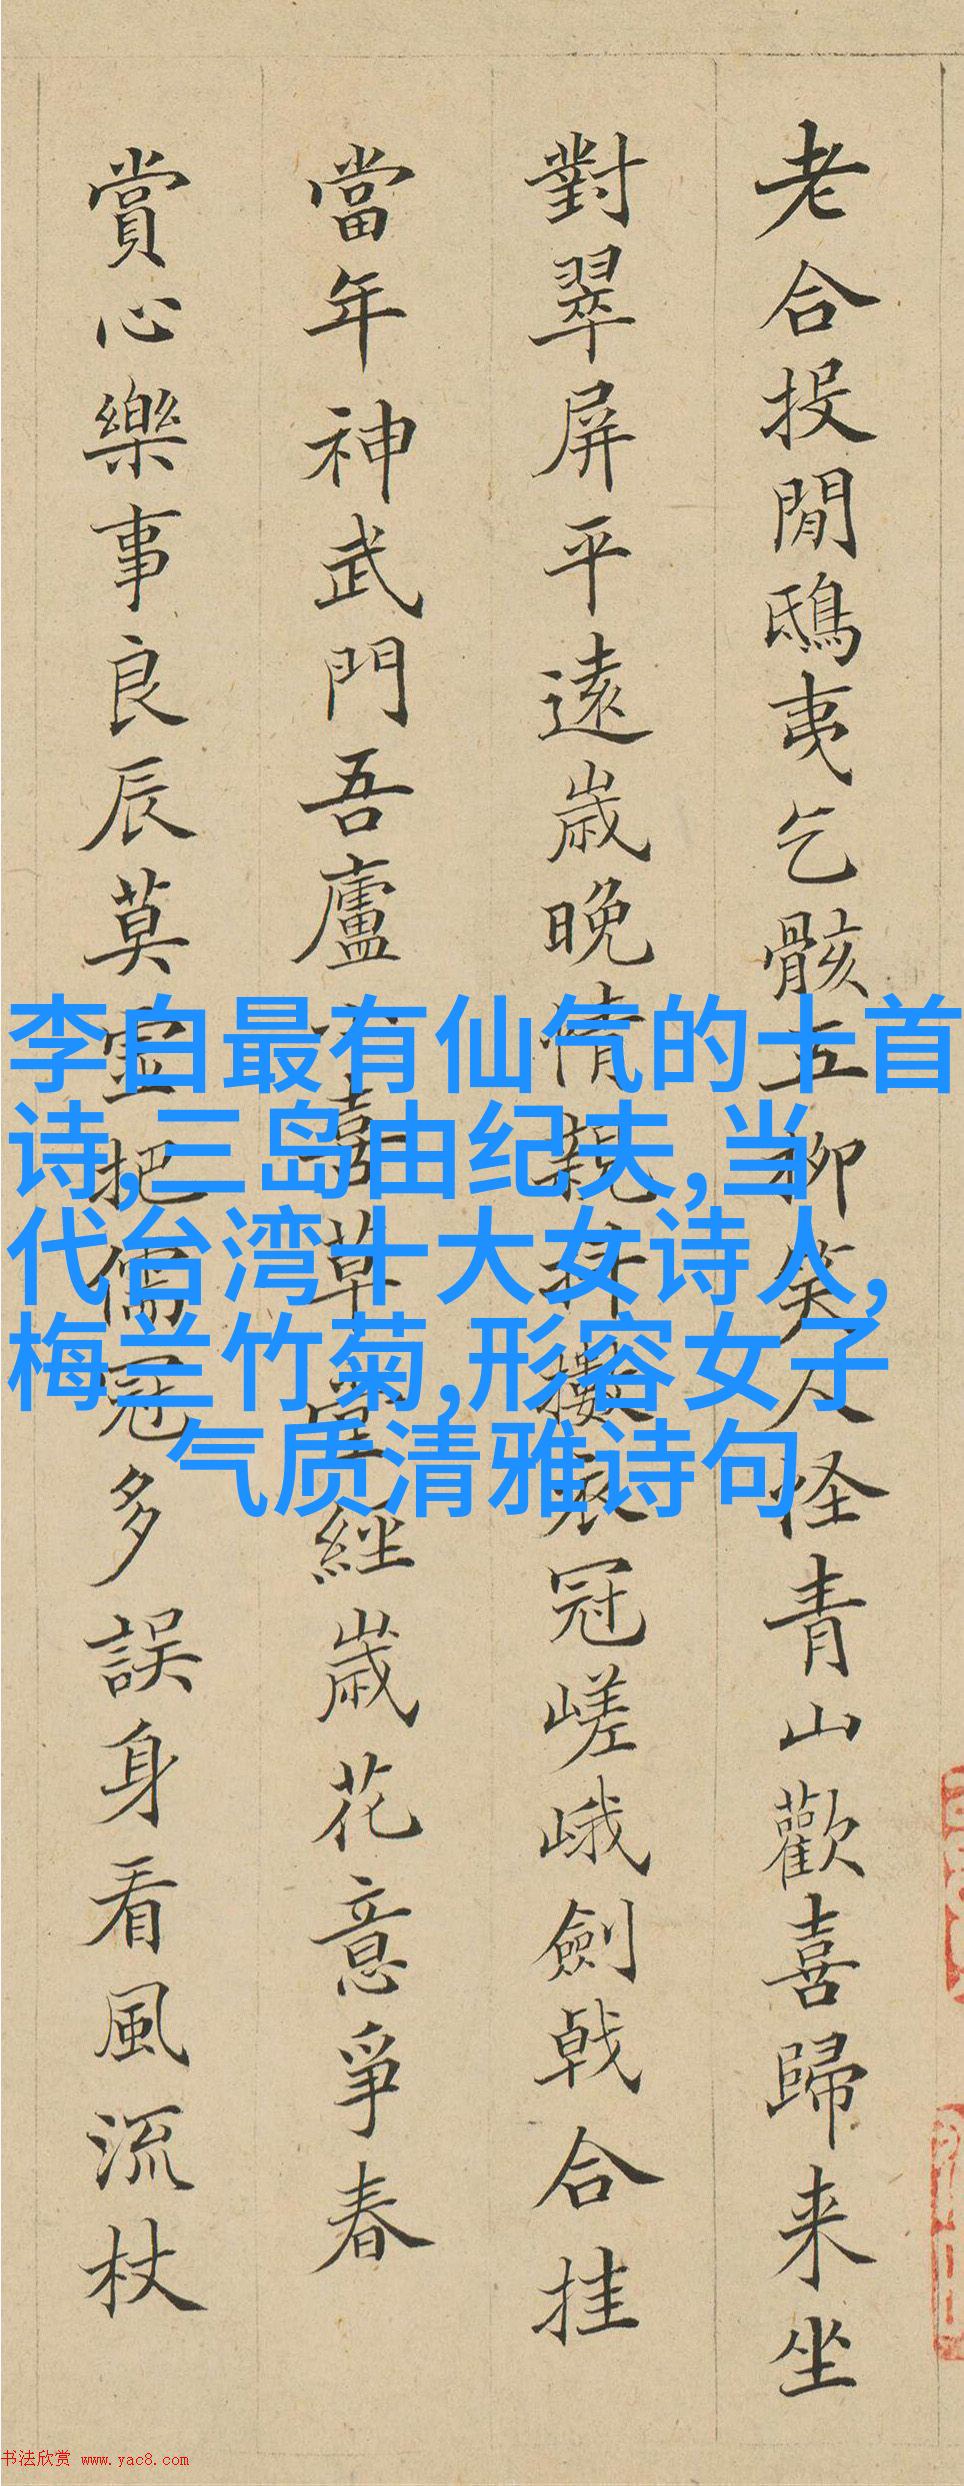 老合投閒鴟夷乞骸五柳笑人怪青山歡喜歸来坐
對翠屏平遠歲晚情親衣冠嵯峨劍戟合挂
當年神武門吾廬喜草堂經歲花意爭春
賞心樂事良辰莫虛把儒冠多誤身看風流杖
李白最有仙气的十首
诗,三岛由纪夫,当
代台湾十大女诗人,
梅兰竹菊,形容女子
气质清雅诗句
书法欣赏 www.yac8.com